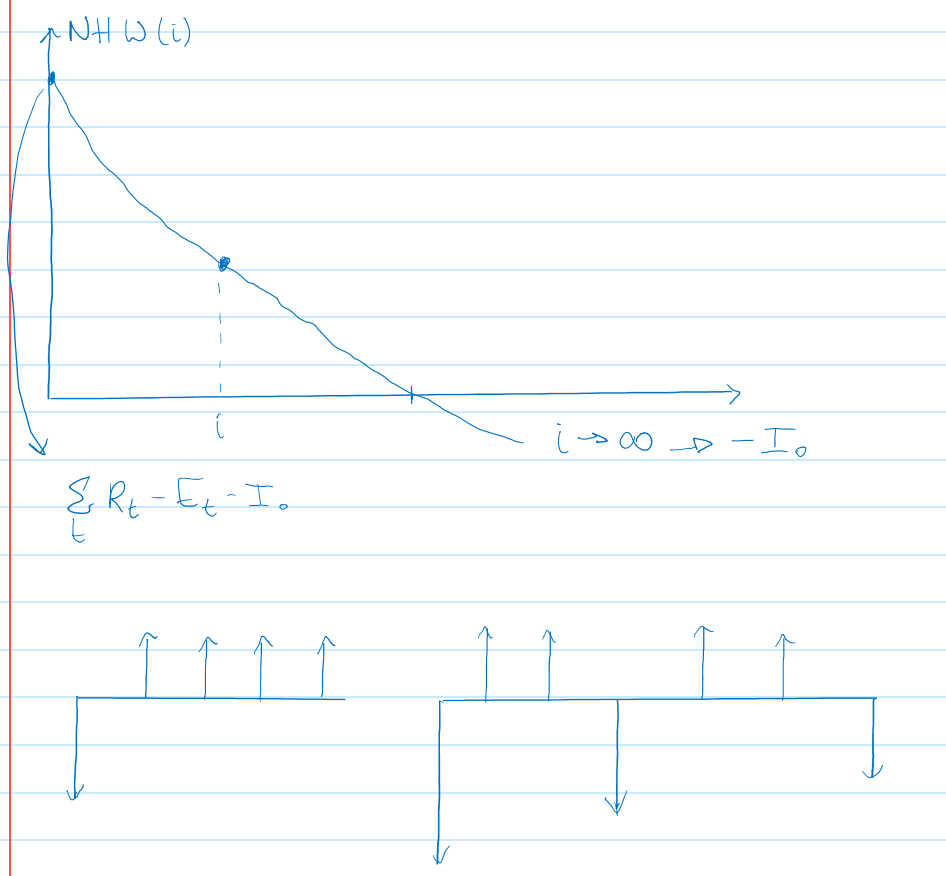 NHW(i)
i
i → ∞ → -I₀
∑ Rₜ - Eₜ - I₀
t